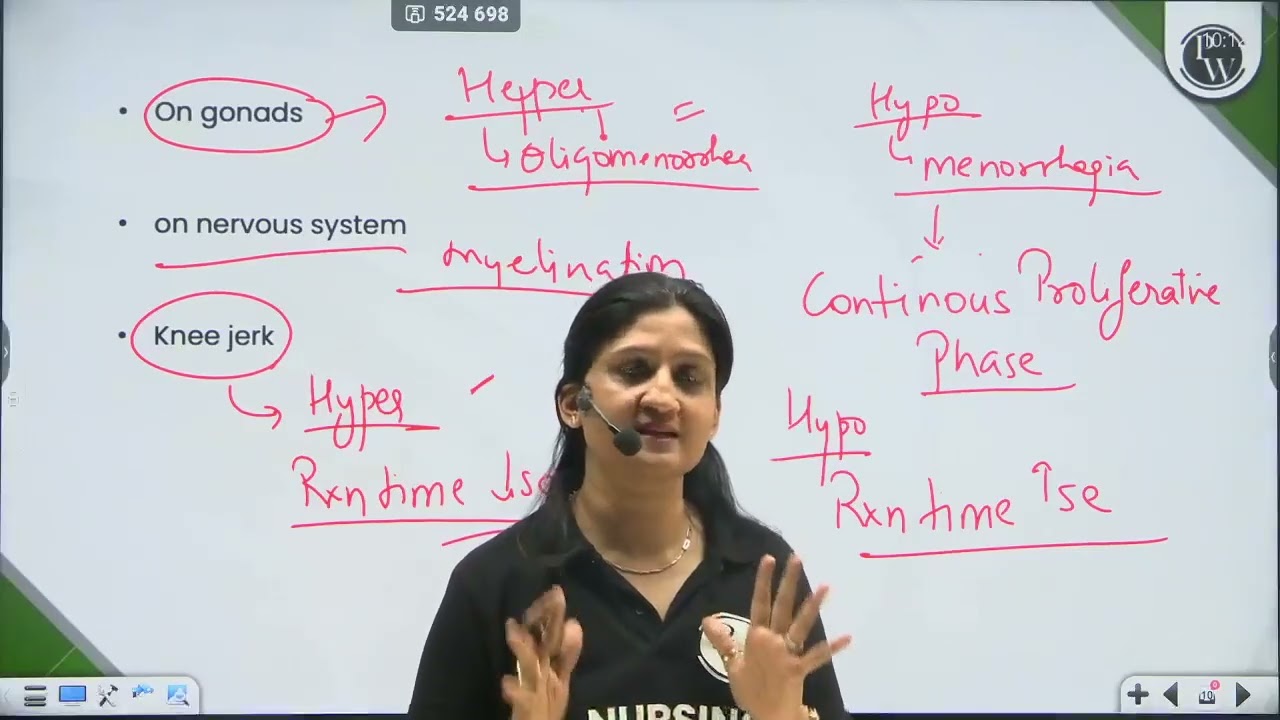 524 698
10:1
PW
• On gonads → Hyper = Hypo
↳ Oligomenorrhea ↳ menorrhagia
↓
• on nervous system myelination
Continous Proliferative
Phase
• Knee jerk
Hyper Hypo
Rxn time ↓se Rxn time ↑se
NURSING
19